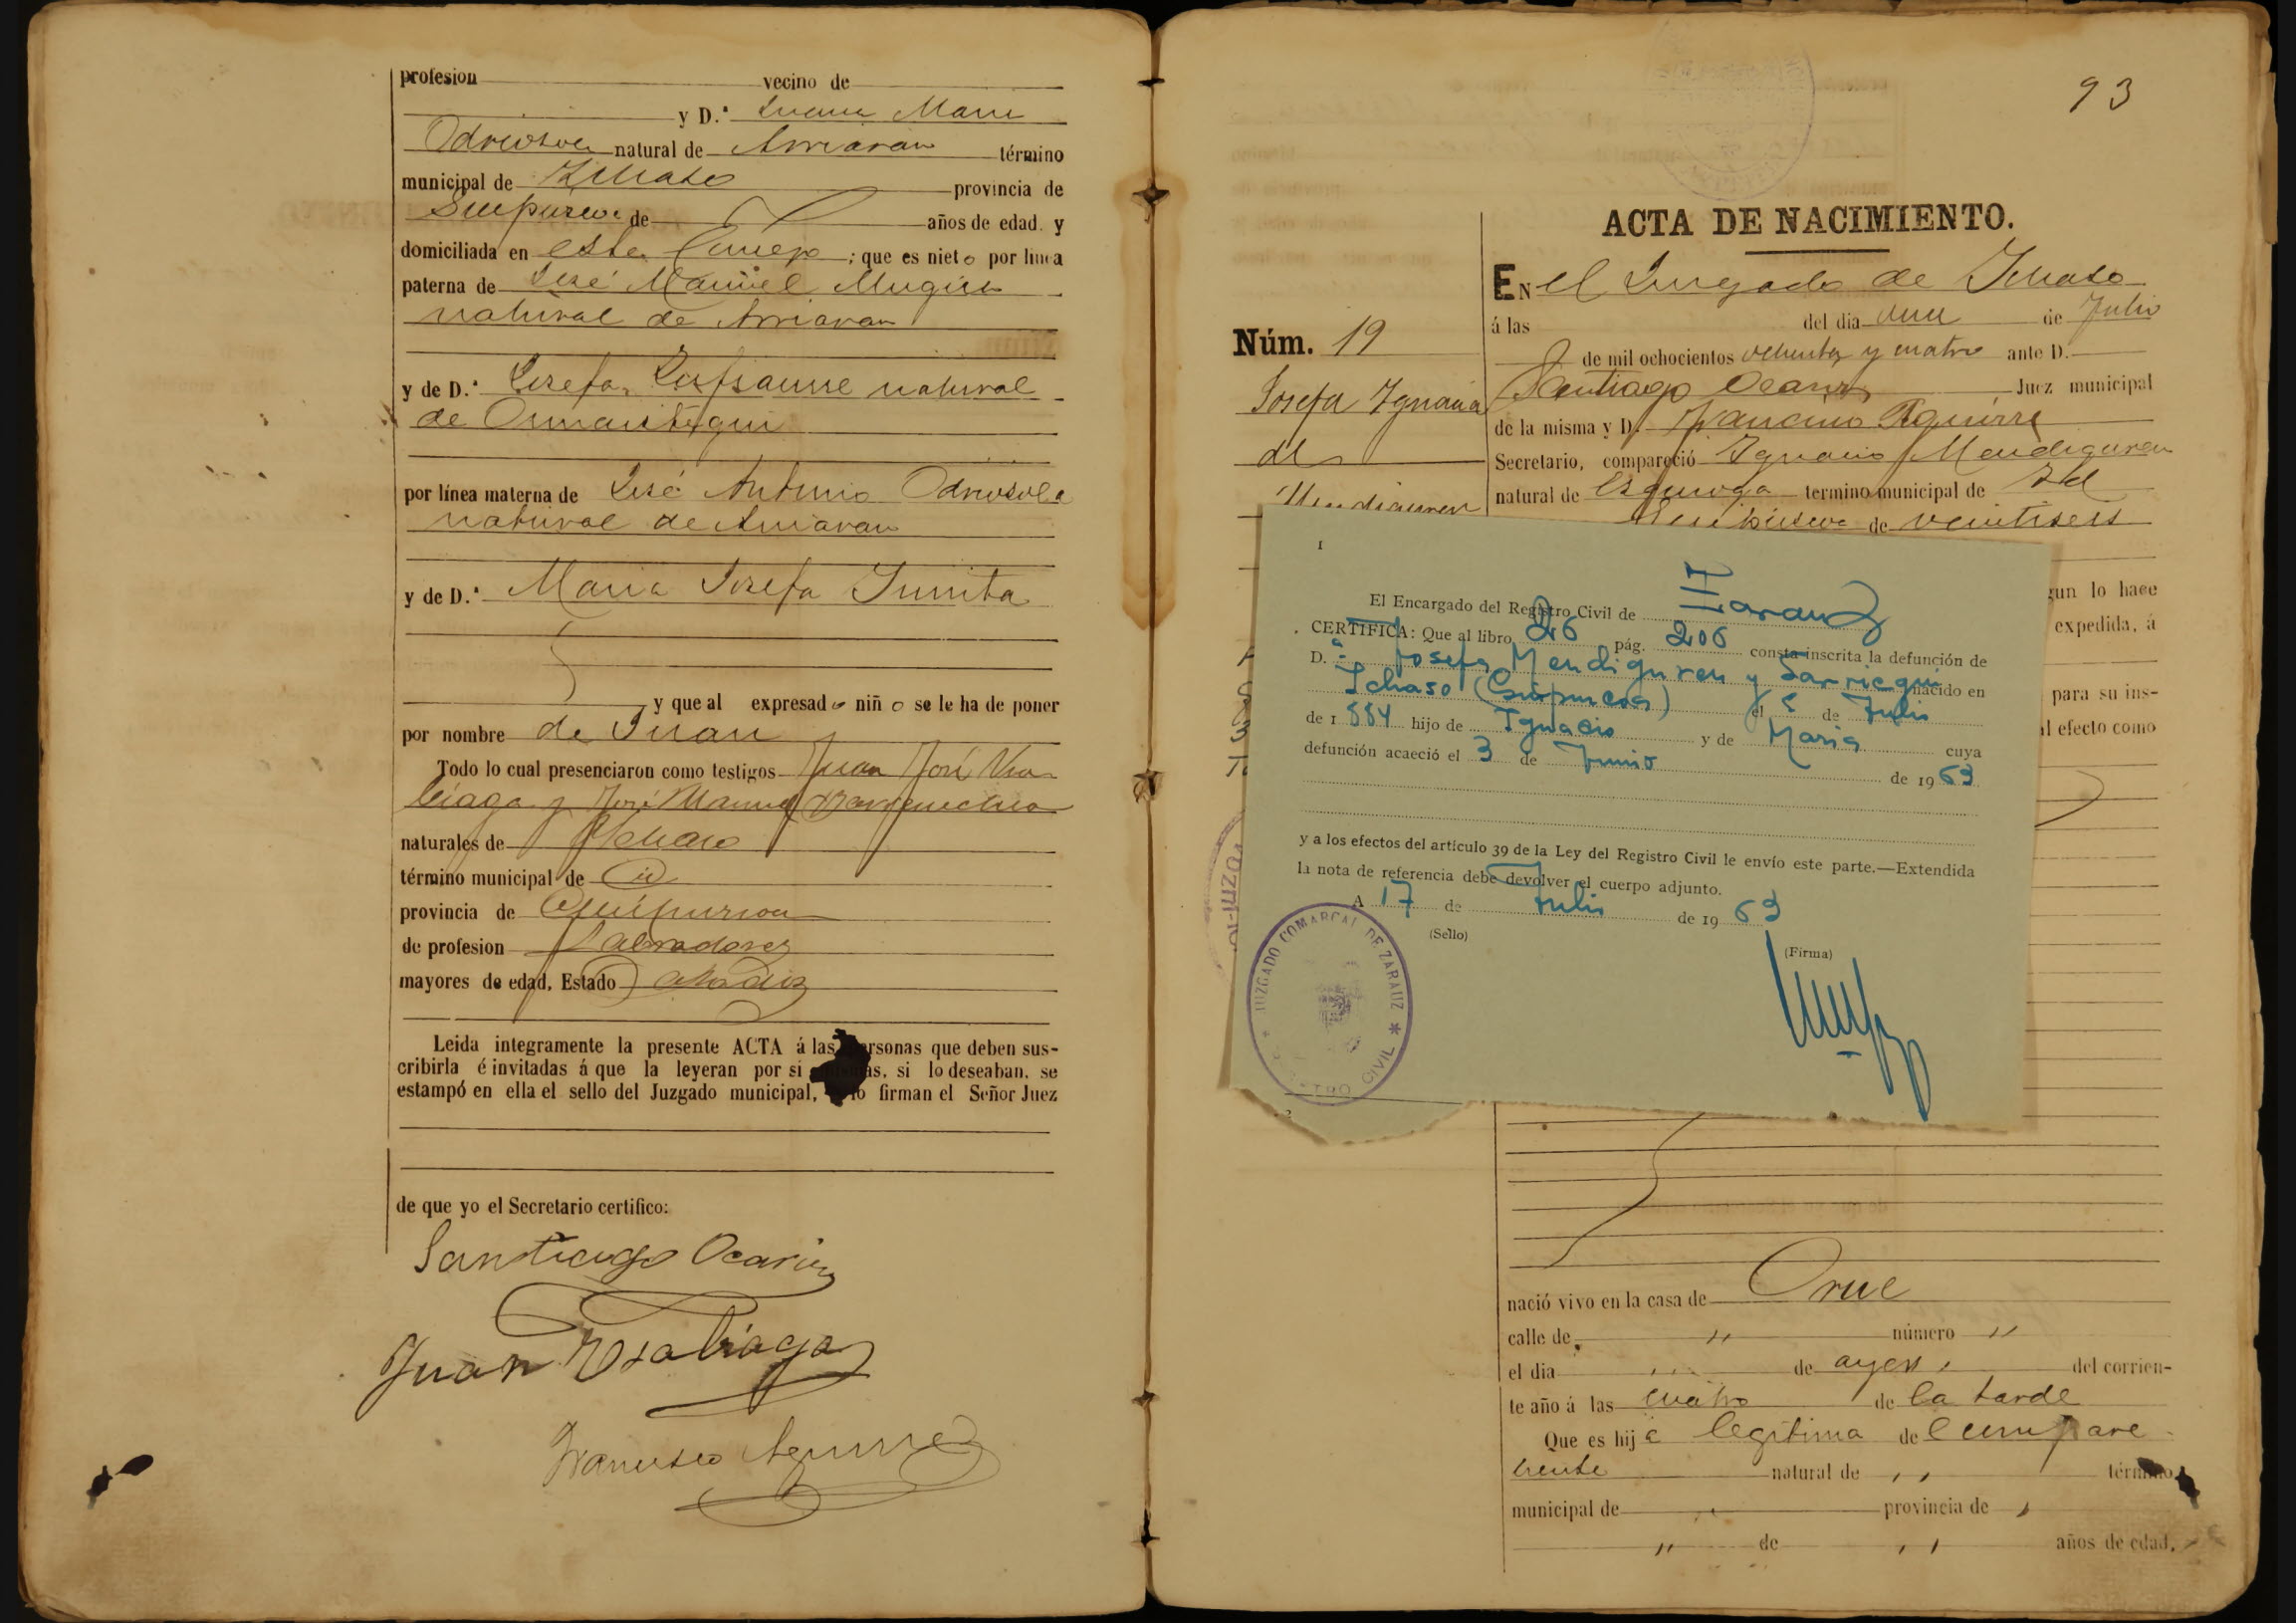 profesion vecino de
y D.ª Juana Maria
Odriosola natural de Arriaran término
municipal de Ichaso provincia de
Guipuzcoa de años de edad. y
domiciliada en esta ; que es nieto por linea
paterna de José Manuel Mugica
natural de Arriaran
y de D.ª Josefa natural
de Ormaiztegui
por línea materna de José Antonio Odriosola
natural de Arriaran
y de D.ª Maria Josefa
y que al expresado niño se le ha de poner
por nombre de Juan
Todo lo cual presenciaron como testigos Juan José Usa-
biaga y José Manuel
naturales de Ichaso
término municipal de id
provincia de Guipuzcoa
de profesion Labradores
mayores de edad, Estado
Leida integramente la presente ACTA á las personas que deben sus-
cribirla é invitadas á que la leyeran por si si lo deseaban, se
estampó en ella el sello del Juzgado municipal, lo firman el Señor Juez
de que yo el Secretario certifico:
Santiago Ocariz
Juan Usabiaga
Francisco Aguirre
93
ACTA DE NACIMIENTO.
Núm. 19
Josefa Ignacia
de
Mendiguren
EN el Juzgado de Ichaso
á las del dia de Julio
de mil ochocientos ochenta y cuatro ante D.
Santiago Ocariz Juez municipal
de la misma y D. Francisco Aguirre
Secretario, compareció Ignacio Mendiguren
natural de Ezquioga termino municipal de Id
Guipuzcoa de veintiseis
gun lo hace
expedida, á
para su ins-
al efecto como
1
El Encargado del Registro Civil de Zarauz
CERTIFICA: Que al libro 26 pág. 206 consta inscrita la defunción de
D.ª Josefa Mendiguren y Sarriegui nacido en
Ichaso (Guipuzcoa) el 5 de Julio
de 1884 hijo de Ignacio y de Maria cuya
defunción acaeció el 3 de Junio de 1963
y a los efectos del artículo 39 de la Ley del Registro Civil le envío este parte.—Extendida
la nota de referencia debe devolver el cuerpo adjunto.
A 17 de Julio de 1963
(Sello)
(Firma)
JUZGADO COMARCAL DE ZARAUZ * CIVIL
nació vivo en la casa de Orue
calle de " número "
el dia " de ayer del corrien-
te año á las cuatro de la tarde
Que es hija legítima de l compare
ciente natural de " término
municipal de " provincia de "
" de " años de edad,